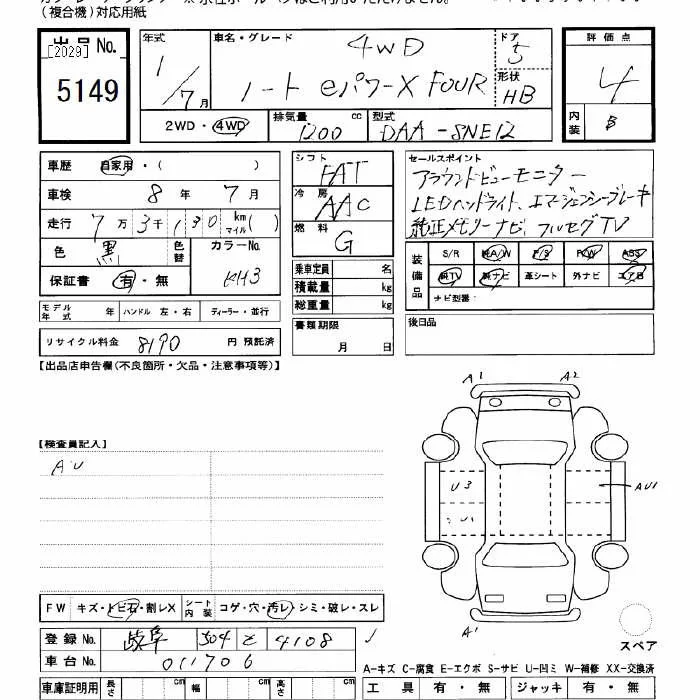 (複合機)対応用紙
出品No.
[2029]
5149
年式
1/7月
車名・グレード
4WD
ノート eパワーX FOUR
ドア
5
形状
HB
2WD・4WD
排気量
1200 cc
型式
DAA-SNE12
評価点
4
内装
B
車歴 自家用・( )
車検 8年 7月
走行 7万3千130 km マイル( )
色 黒 色替 カラーNo. KH3
保証書 有・無
シフト
FAT
冷房
AAC
燃料
G
セールスポイント
アラウンドビューモニター
LEDヘッドライト、エマージェンシーブレーキ
純正メモリーナビ、フルセグTV
装備品
S/R 純A/W P/S P/W ABS
純TV 純ナビ 革シート 外ナビ エアB
ナビ型番:
乗車定員 名
積載量 kg
総重量 kg
モデル年式 年 ハンドル 左・右 ディーラー・並行
リサイクル料金 8190 円 預託済
書類期限
月 日
後日品
【出品店申告欄(不良箇所・欠品・注意事項等)】
A1 A2
【検査員記入】
AU
U3
AU1
A1
FW キズ・トビ石・割レX シート内装 コゲ・穴・汚レ・シミ・破レ・スレ
登録 No. 岐阜 504 と 4108
車台 No. 011706
スペア
A-キズ C-腐食 E-エクボ S-サビ U-凹ミ W-補修 XX-交換済
車庫証明用 長さ cm 幅 cm 高さ cm
工具 有・無 ジャッキ 有・無